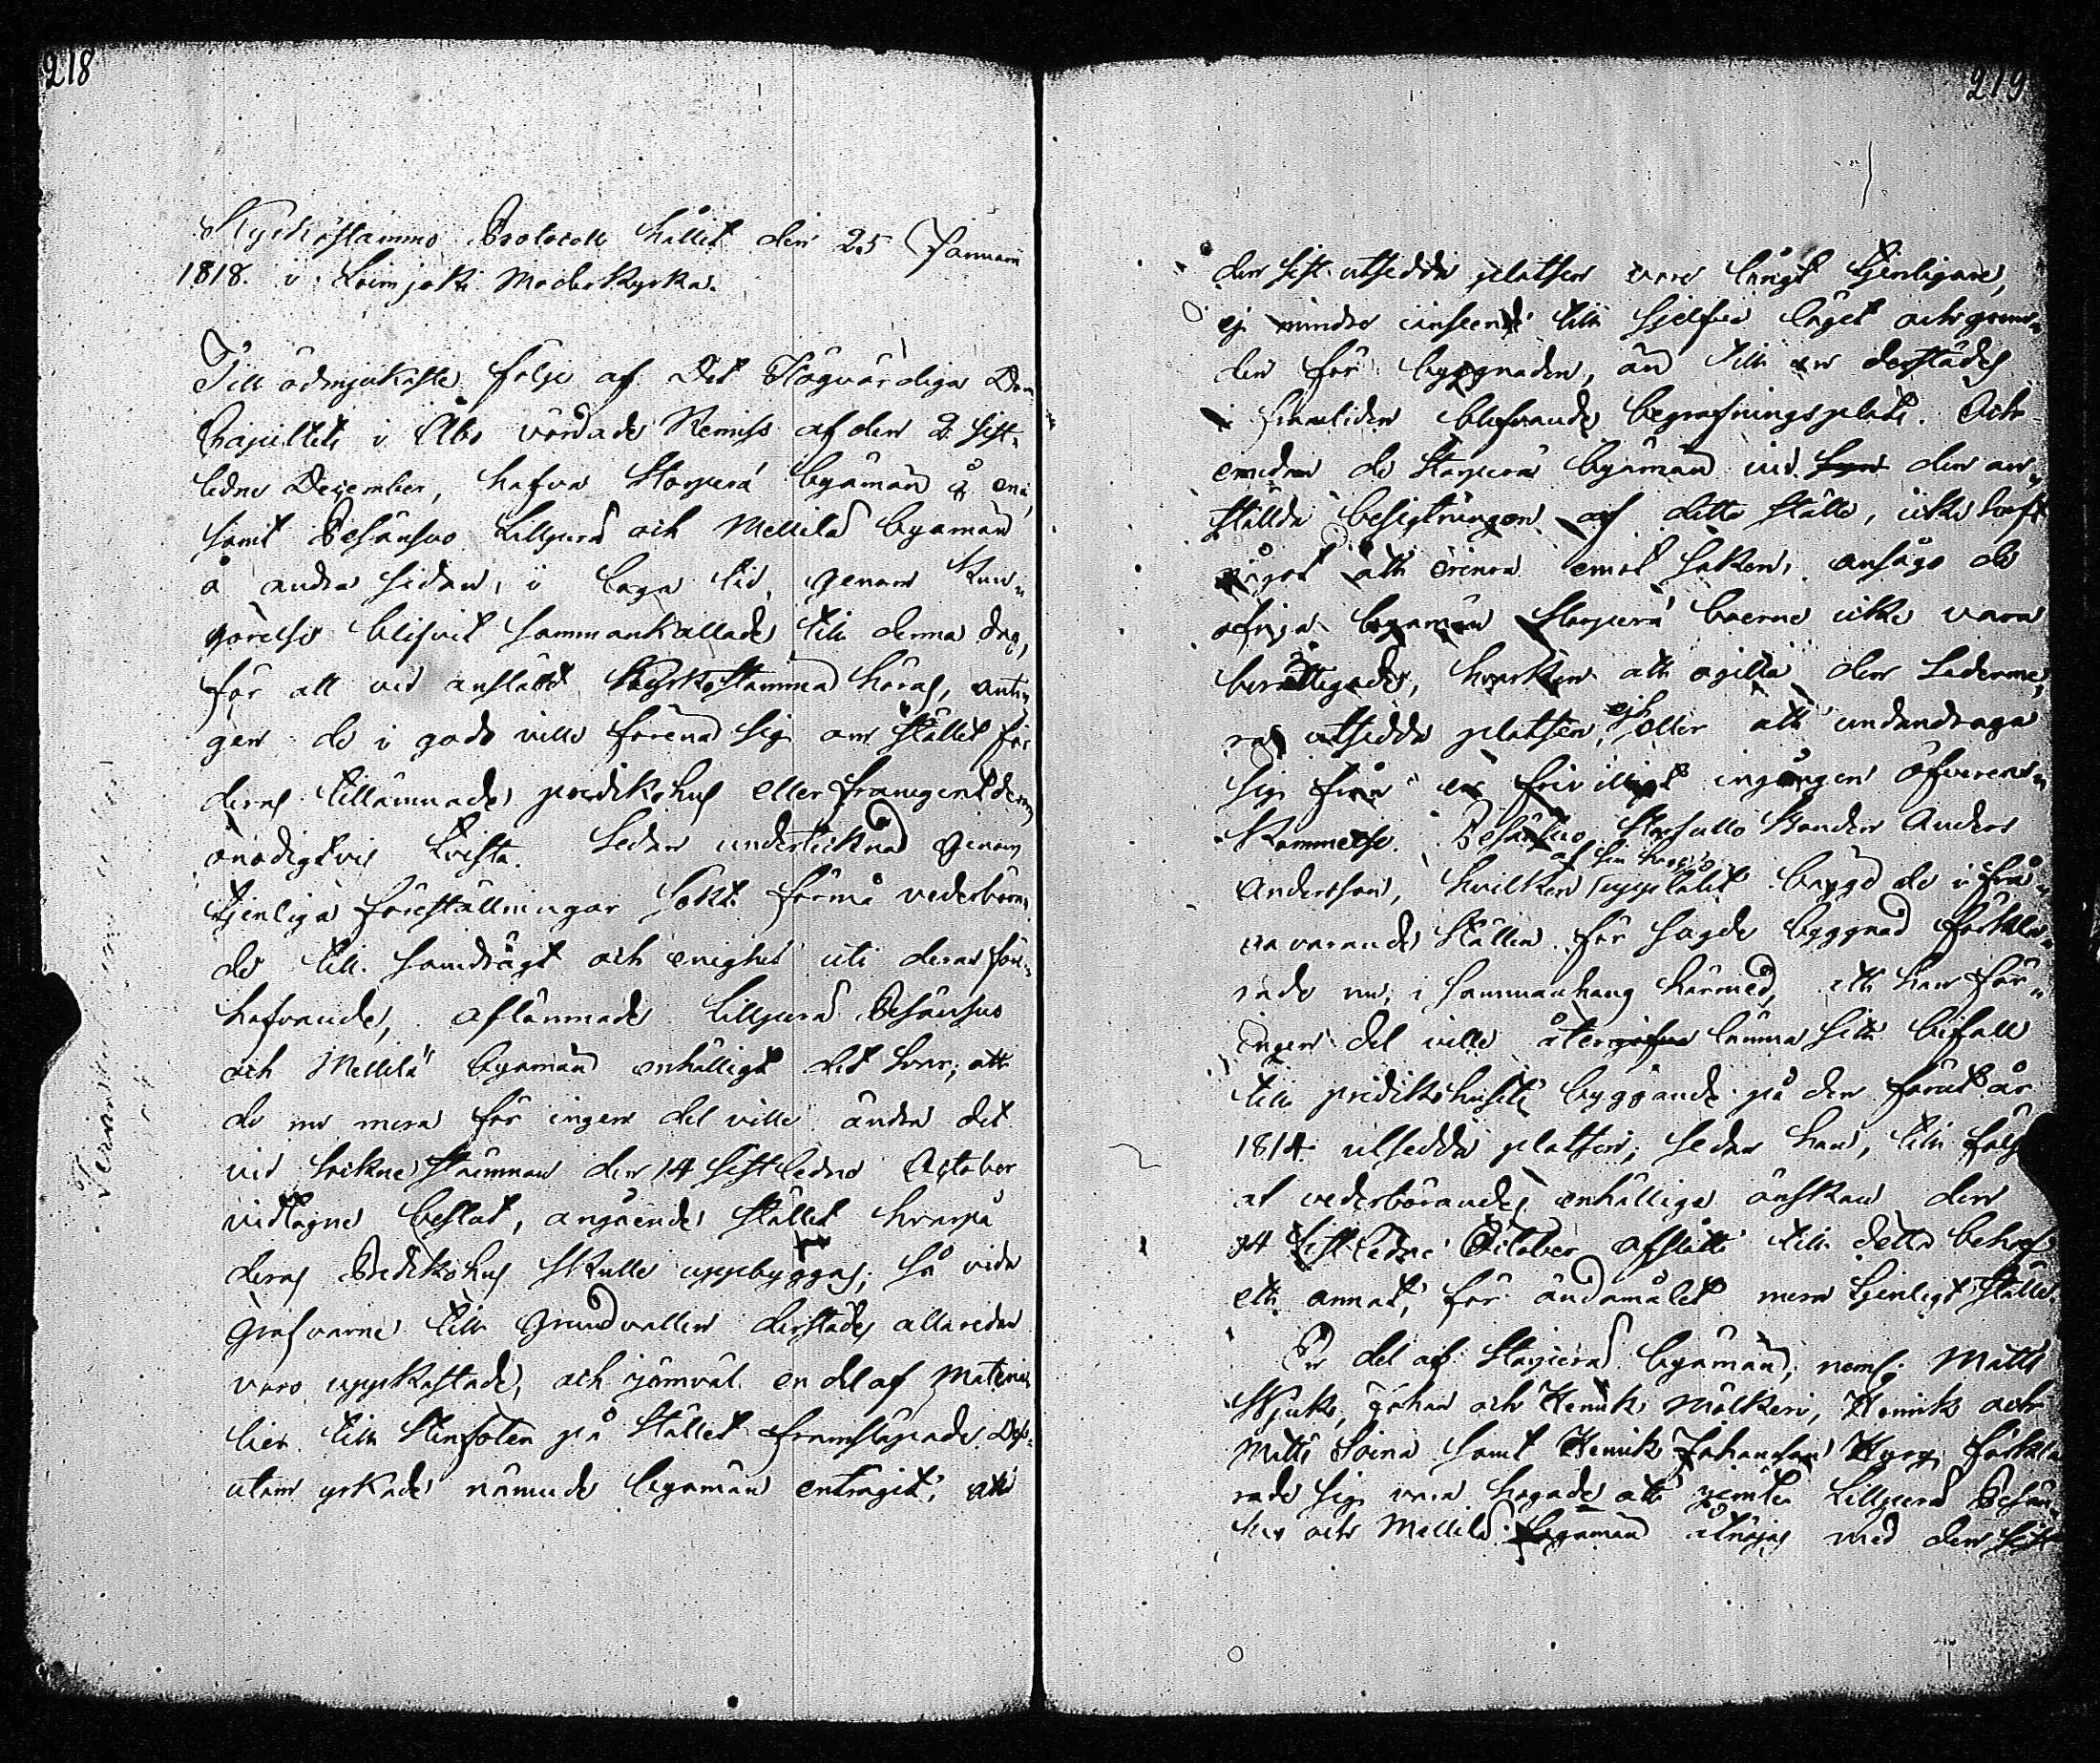 218
Kyrkostämmo Protocoll hållit den 25 Januarii
1818. i Loimjoki Moderkyrka.
Till ödmjukaste följe af Det Högvördiga Dom
Capitlets i Åbo vördade Remiss af den 2 sist¬
ledne December, hafva Storperä byamän å ena,
samt Pesänsuo Lillperä och Mellilä byamän
å andra sidan, i laga tid, genom Kun¬
görelse blifvit sammankallade till denna dag,
för att vid anstäld Kyrkostämma höras, antin¬
gen de i godo ville förena sig om stället för
deras tillämnade predikohus eller framgent derom
onödigtvis tvista. Sedan undertecknad genom
tjenliga föreställningar sökt förmå vederböran¬
de till samdrägt och enighet uti deras före¬
hafvande, aflämnade Lillperä Pesänsuo
och Mellilä byamän enhälligt det svar; att
de nu mera för ingen del ville ändra det
vid Sockne stämman den 14 sistledne October
vidtagne beslut, angående stället hvarpå
deras Predikohus skulle uppbyggas; så vida
Grafvarne till Grundvallen derstädes allaredan
voro uppkastade, och jämväl en del af Materia¬
lier till stenfoten på stället framsläpade. Dess¬
utom yrkade nämnde byamän enträgit, att
219
den sist utsedda platsen vore långt tjenligare,
ej mindre i anseende till sjelfva läget och grun¬
den för byggnaden, än till en derstädes
i framtiden blifvande begrafningsplats. Och
emedan de Storperä byamän vid den an¬
ställda besigtningen af detta ställe, icke haft
något att erinra emot saken, ansågo de
öfriga byamän Storperä boerne icke vara
berättigade, hvarken att ogilla den Ledermera
utsedda platsen, ej heller att undandraga
sig från en frivilligt ingången öfverens¬
kommelse. Pesänsuo Bonden Anders
Andersson, hvilken af sin upplåtit bägge de i frå¬
ga varande ställen för sagde byggnad förkla¬
rade nu, i sammanhang härmed, att han för
ingen del ville återgifva lämna sitt bifall
till predikohusets byggande på den förut år
1814 utsedda platsen; sedan han, till följe
af vederbörandes enhälliga önskan den
14 sistledne October afstått till detta behof
ett annat, för ändamålet mera tjenligt ställe.
En del af Storperä byamän, neml. Matts
Skjuko, Johan och Henrik Mälkeri, Henrik och
Matts Soini samt Henrik Johansson Hyry förkla
rade sig vara hågade att jemte Lillperä Pesän¬
suo och Mellilä byamän åtnöjas med den sist